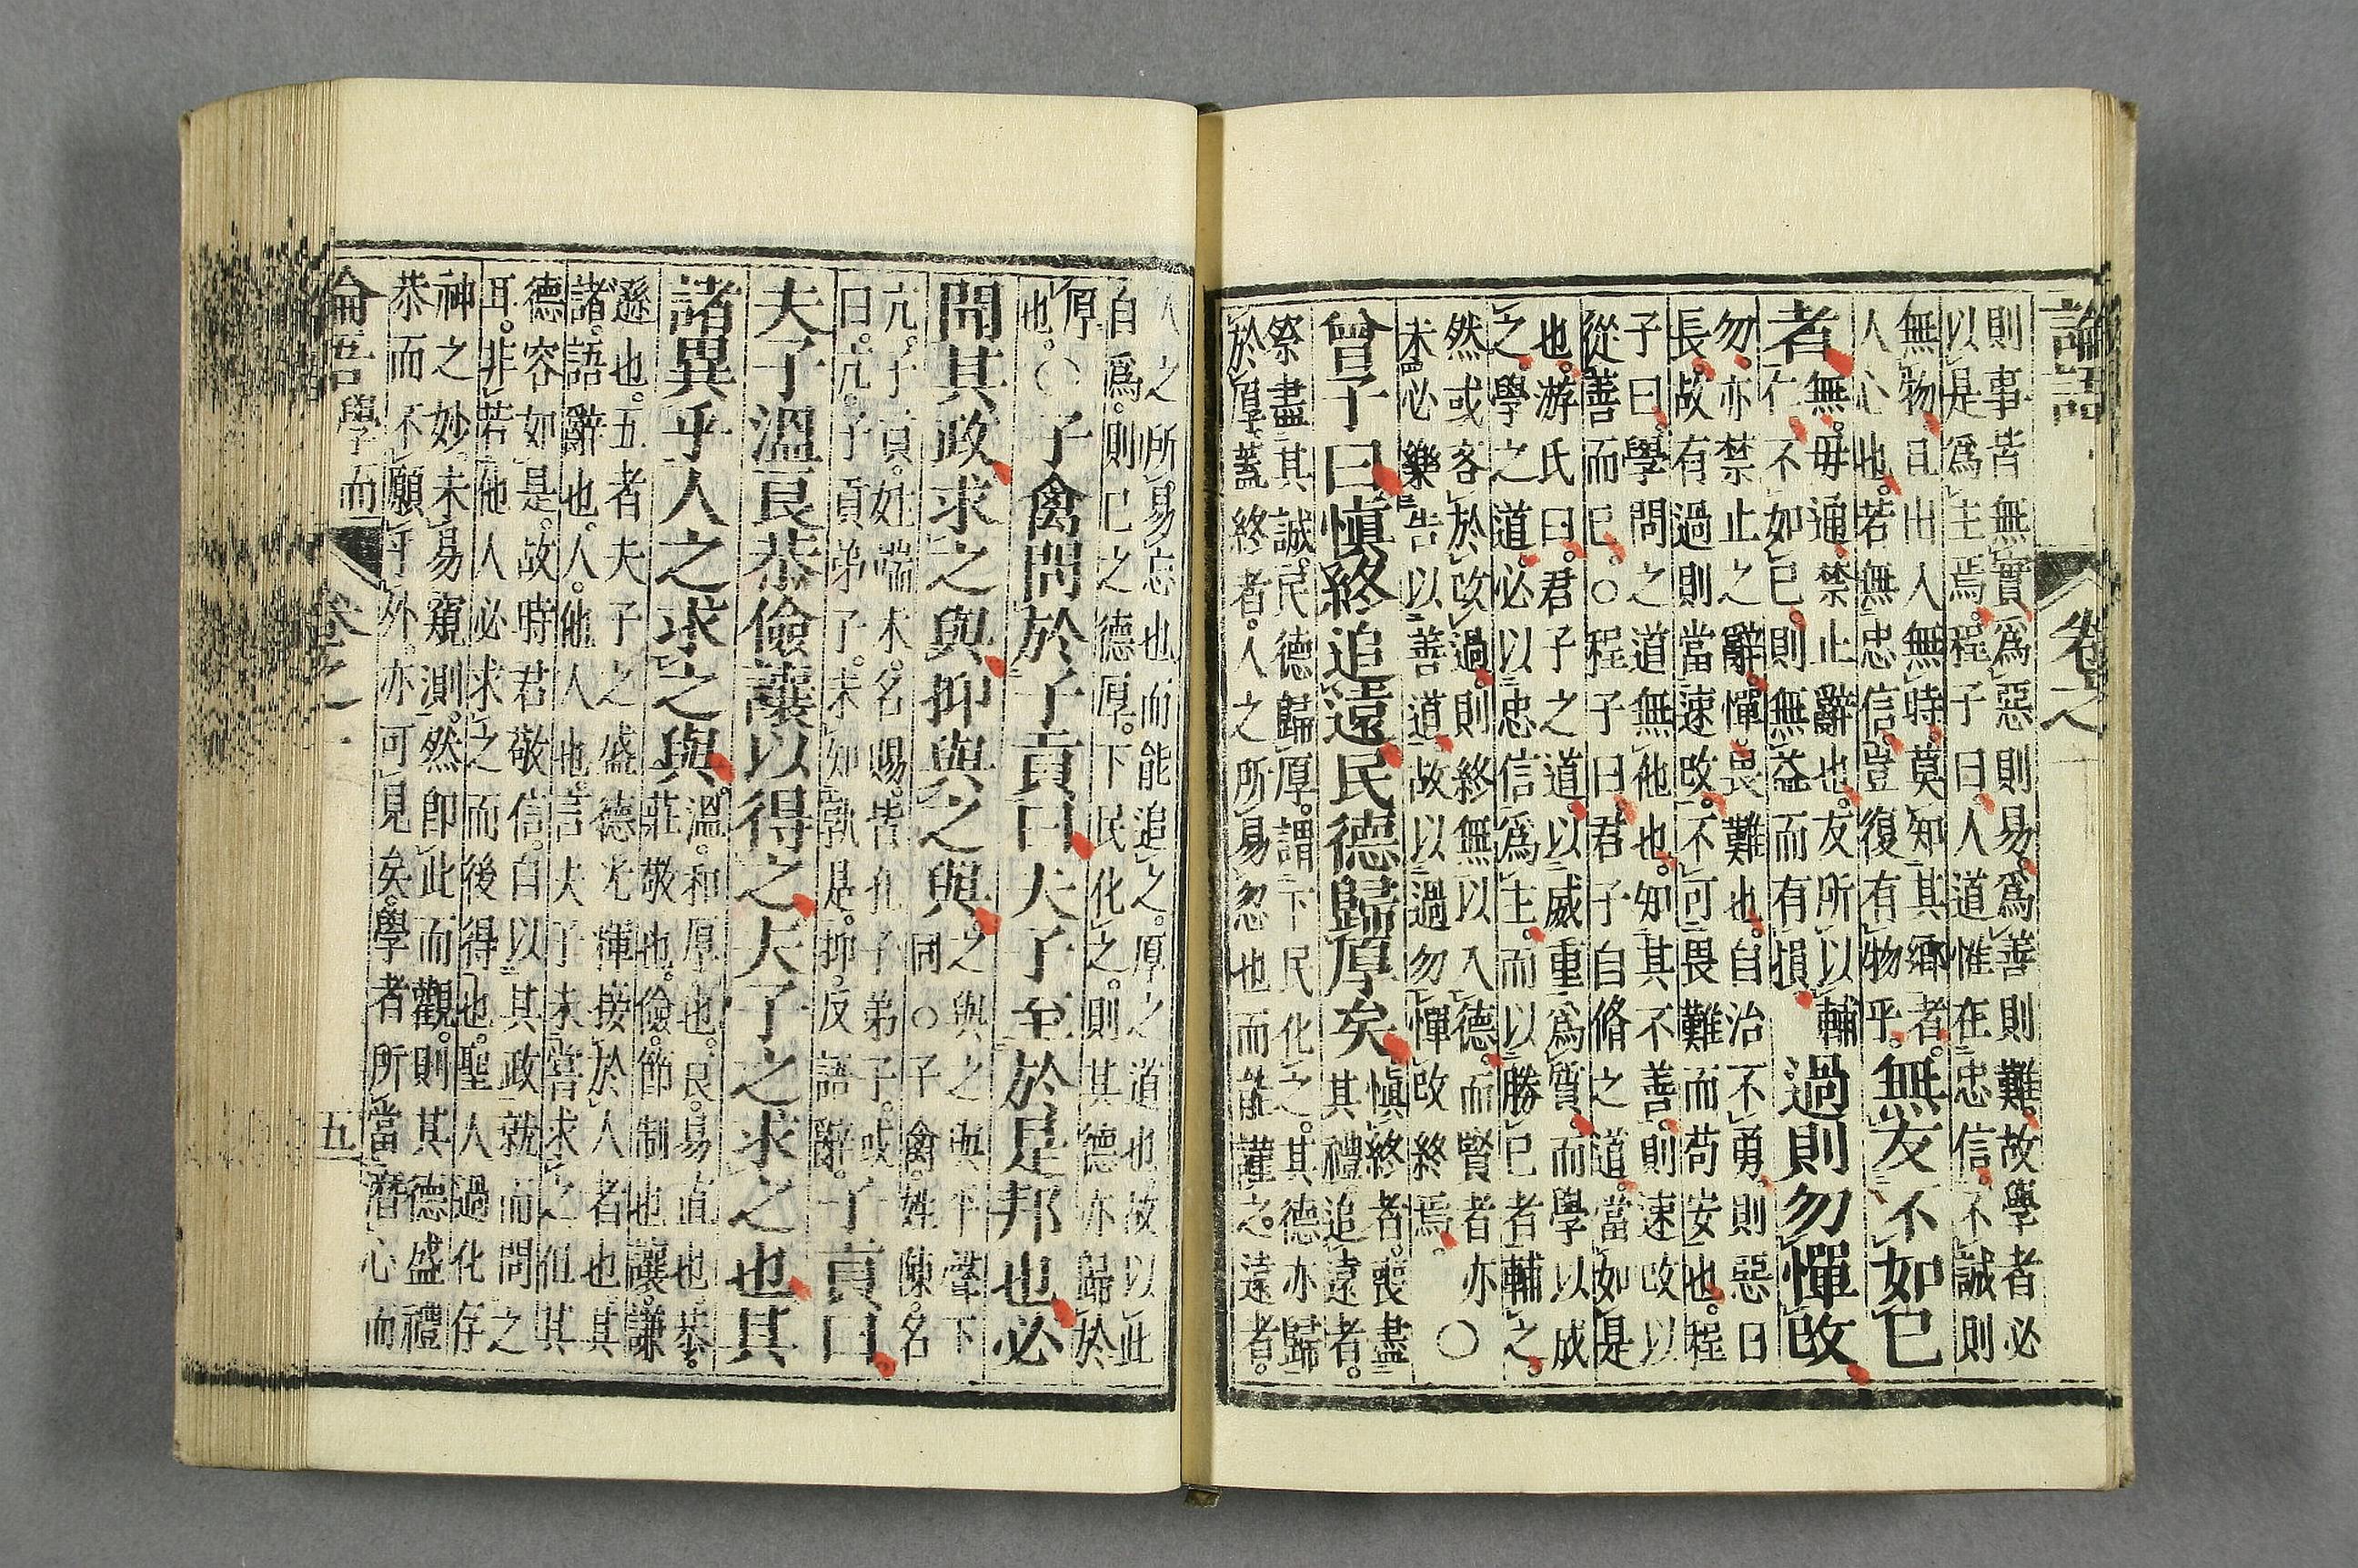 論語 卷之一
則事皆無實爲惡則易爲善則難故學者必
以是爲主焉程子曰人道惟在忠信不誠則
無物且出入無時莫知其鄉者
人心也若無忠信豈復有物乎
無友不如己
者
無毋通禁止辭也友所以輔
仁不如己則無益而有損
過則勿憚改
勿亦禁止之辭憚畏難也自治不勇則惡日
長故有過則當速改不可畏難而苟安也程
子曰學問之道無他也知其不善則速改以
從善而已○程子曰君子自脩之道當如是
也游氏曰君子之道以威重爲質而學以成
之學之道必以忠信爲主而以勝己者輔之
然或吝於改過則終無以入德而賢者亦
未必樂告以善道故以過勿憚改終焉
○
曾子曰愼終追遠民德歸厚矣
愼終者喪盡
其禮追遠者
祭盡其誠民德歸厚謂下民化之其德亦歸
於厚蓋終者人之所易忽也而能謹之遠者
人之所易忘也而能追之厚之道也故以此
自爲則己之德厚下民化之則其德亦歸於
厚
也
○子禽問於子貢曰夫子至於是邦也必
聞其政求之與抑與之與
之與之與平聲下
同○子禽姓陳名
亢子貢姓端木名賜皆孔子弟子或
曰亢子貢弟子未知孰是抑反語辭
子貢曰
夫子溫良恭儉讓以得之夫子之求之也其
諸異乎人之求之與
溫和厚也良易直也恭
莊敬也儉節制也讓謙
遜也五者夫子之盛德光輝接於人者也其
諸語辭也人他人也言夫子未嘗求之但其
德容如是故時君敬信自以其政就而問之
耳非若他人必求之而後得也聖人過化存
神之妙未易窺測然即此而觀則其德盛禮
恭而不願乎外亦可見矣學者所當潛心而
論語 學而 卷之一 五